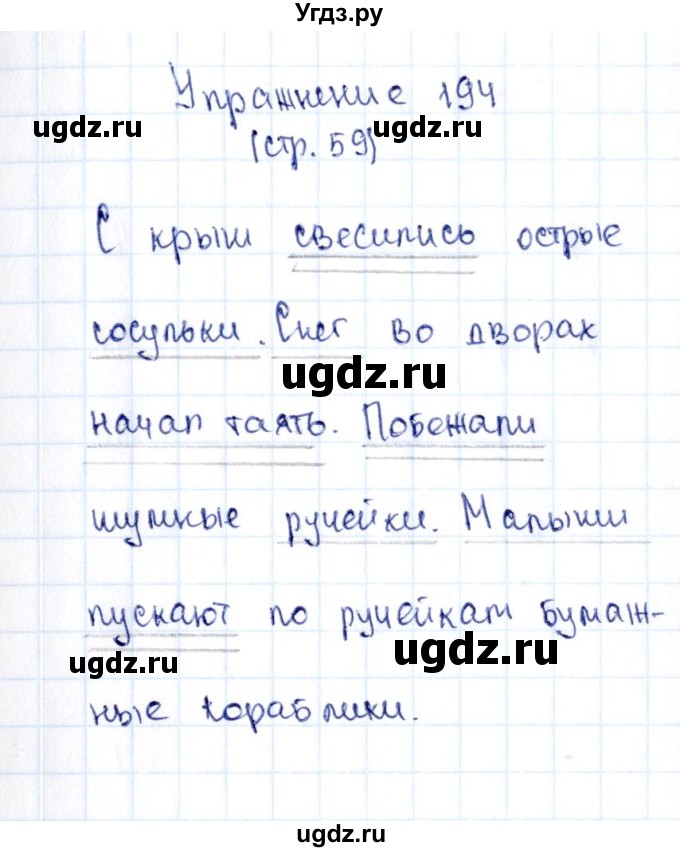 Угдз.ру
Упражнение 194
ugdz.ru ugdz.ru
(стр. 59)
С крыш свесились острые
сосульки. Снег во дворах
ugdz.ru
начал таять. Побежали
шумные ручейки. Малыши
пускают по ручейкам бумаж-
ugdz.ru ugdz.ru
ные кораблики.
ugdz.ru ugdz.ru
ugdz.ru